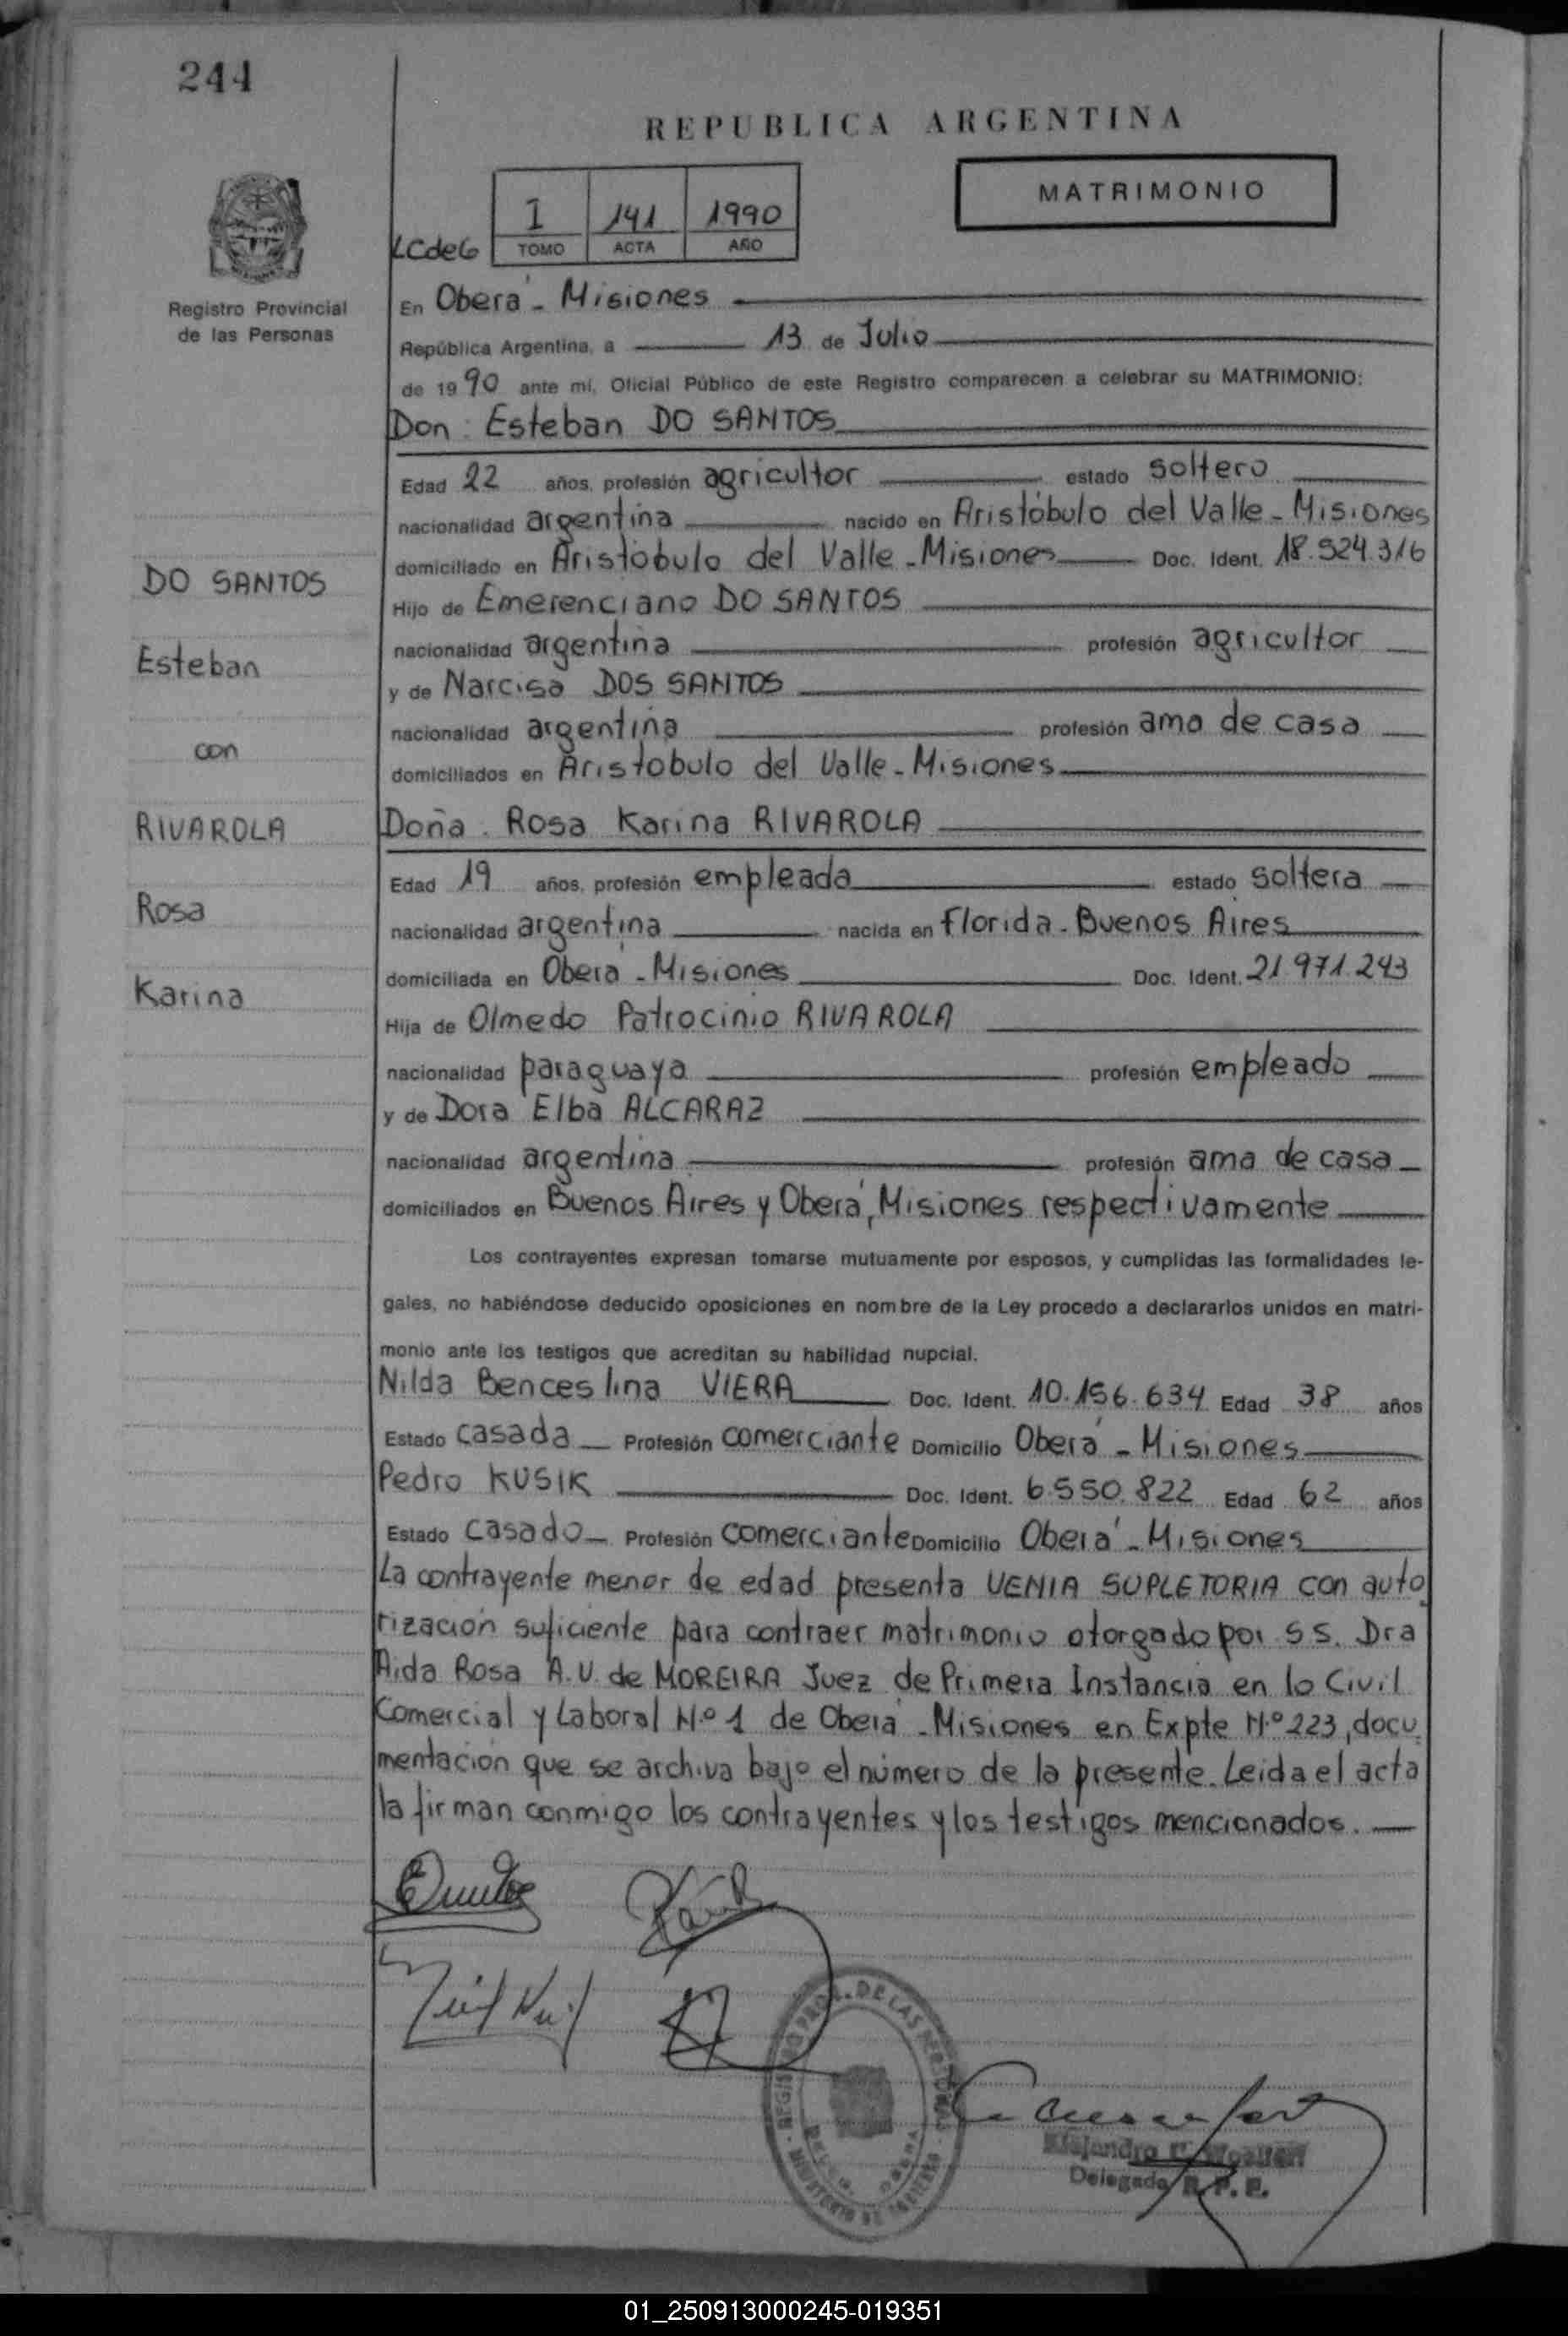 244
REPUBLICA ARGENTINA
MATRIMONIO
I 141 1990
LCdeG TOMO ACTA AÑO
Registro Provincial
de las Personas
En Oberá - Misiones
República Argentina, a 13 de Julio
de 1990 ante mí, Oficial Público de este Registro comparecen a celebrar su MATRIMONIO:
Don: Esteban DO SANTOS
Edad 22 años, profesión agricultor estado soltero
nacionalidad argentina nacido en Aristóbulo del Valle - Misiones
domiciliado en Aristóbulo del Valle - Misiones Doc. Ident. 18.524.316
Hijo de Emerenciano DO SANTOS
nacionalidad argentina profesión agricultor
y de Narcisa DOS SANTOS
nacionalidad argentina profesión ama de casa
domiciliados en Aristobulo del Valle - Misiones
DO SANTOS
Esteban
con
RIVAROLA
Rosa
Karina
Doña. Rosa Karina RIVAROLA
Edad 19 años, profesión empleada estado soltera
nacionalidad argentina nacida en Florida - Buenos Aires
domiciliada en Oberá - Misiones Doc. Ident. 21.971.243
Hija de Olmedo Patrocinio RIVAROLA
nacionalidad paraguaya profesión empleado
y de Dora Elba ALCARAZ
nacionalidad argentina profesión ama de casa
domiciliados en Buenos Aires y Oberá, Misiones respectivamente
Los contrayentes expresan tomarse mutuamente por esposos, y cumplidas las formalidades le-
gales, no habiéndose deducido oposiciones en nombre de la Ley procedo a declararlos unidos en matri-
monio ante los testigos que acreditan su habilidad nupcial.
Nilda Benceslina VIERA Doc. Ident. 10.156.634 Edad 38 años
Estado casada Profesión comerciante Domicilio Oberá - Misiones
Pedro KUSIK Doc. Ident. 6.550.822 Edad 62 años
Estado casado Profesión comerciante Domicilio Oberá - Misiones
La contrayente menor de edad presenta VENIA SUPLETORIA con auto
rización suficiente para contraer matrimonio otorgado por S S. Dra
Aida Rosa A.U. de MOREIRA Juez de Primera Instancia en lo Civil
Comercial y Laboral N.º 1 de Oberá - Misiones en Expte N.º 223, docu
mentación que se archiva bajo el número de la presente. Leida el acta
la firman conmigo los contrayentes y los testigos mencionados.
REGISTRO PROV. DE LAS PERSONAS
Alejandro
Delegado R. P. P.
01_250913000245-019351